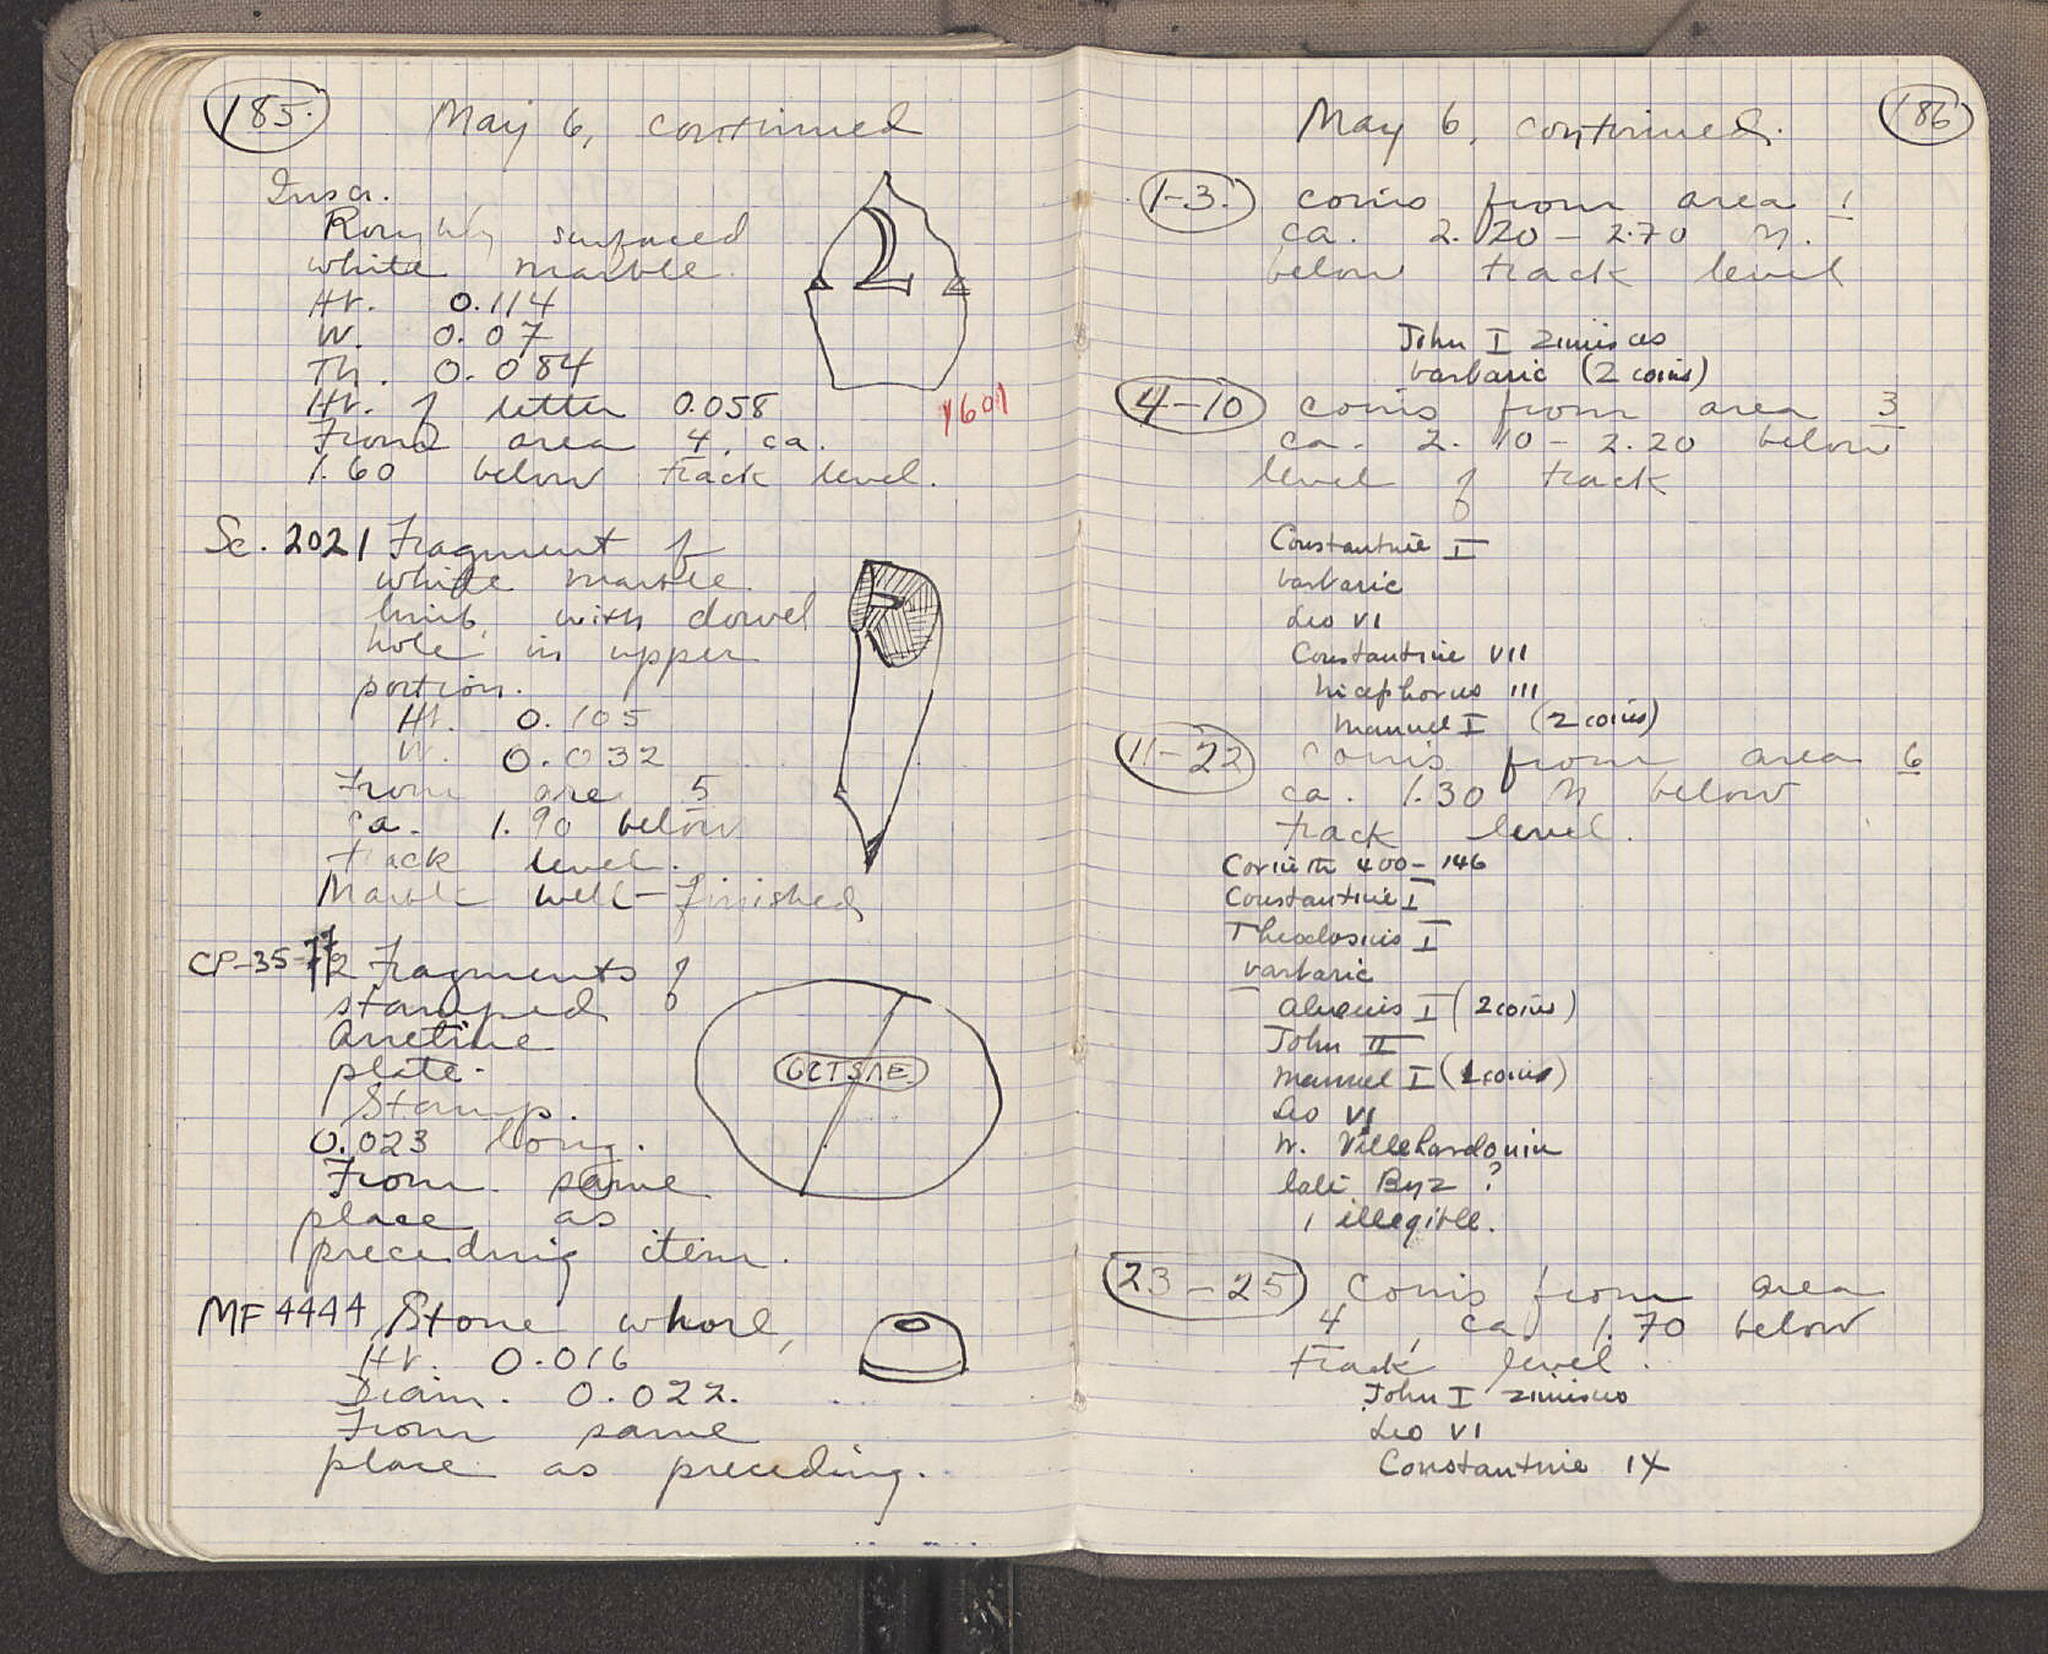 185.
May 6, continued
Inscr.
Roughly surfaced
white marble.
Ht. 0.114
W. 0.07
Th. 0.084
Ht. of letter 0.058
From area 4, ca.
1.60 below track level.
2
1601
Sc. 2021 Fragment of
white marble
limb, with dowel
hole in upper
portion.
Ht. 0.105
W. 0.032
From are 5
ca. 1.90 below
track level.
Marble well-finished
CP-35-77 2 Fragments of
stamped
Arretine
plate.
Stamp.
0.023 long.
From same
place as
preceding item.
MF 4444 Stone whorl,
Ht. 0.016
Diam. 0.022.
From same
place as preceding.
186
May 6, continued.
1-3. Coins from area 1
ca. 2.20 - 2.70 M.
below track level
John I Zimisces
barbaric (2 coins)
4-10 Coins from area 3
ca. 2.10 - 2.20 below
level of track
Constantine I
barbaric
Leo VI
Constantine VII
Nicephorus III
Manuel I (2 coins)
11-22 Coins from area 6
ca. 1.30 M below
track level.
Corinth 400-146
Constantine I
Theodosius I
barbaric
Alexius I (2 coins)
John II
Manuel I
Leo VI
W. Villehardouin
late Byz ?
1 illegible.
23-25 Coins from area
4, ca. 1.70 below
track level.
John I Zimisces
Leo VI
Constantine IX